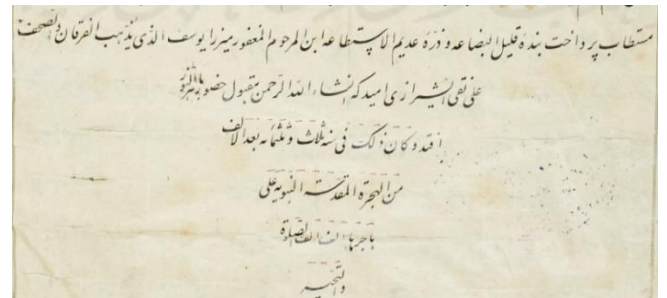 مستطاب پرداخت بنده قلیل البضاعه و ذرّه عدیم الاستطاعه ابن المرحوم المغفور میرزا یوسف الذی یذهب الفرقان و الصحف
علی نقی الشیرازی امید که انشاء الله الرحمن مقبول حضور
افتد و کان ذلک فی سنه ثلاث و ثلثمائه بعد الالف
من الهجرة المقدسة النبویه علی
هاجرها الف الف الصلوة
و التحیه